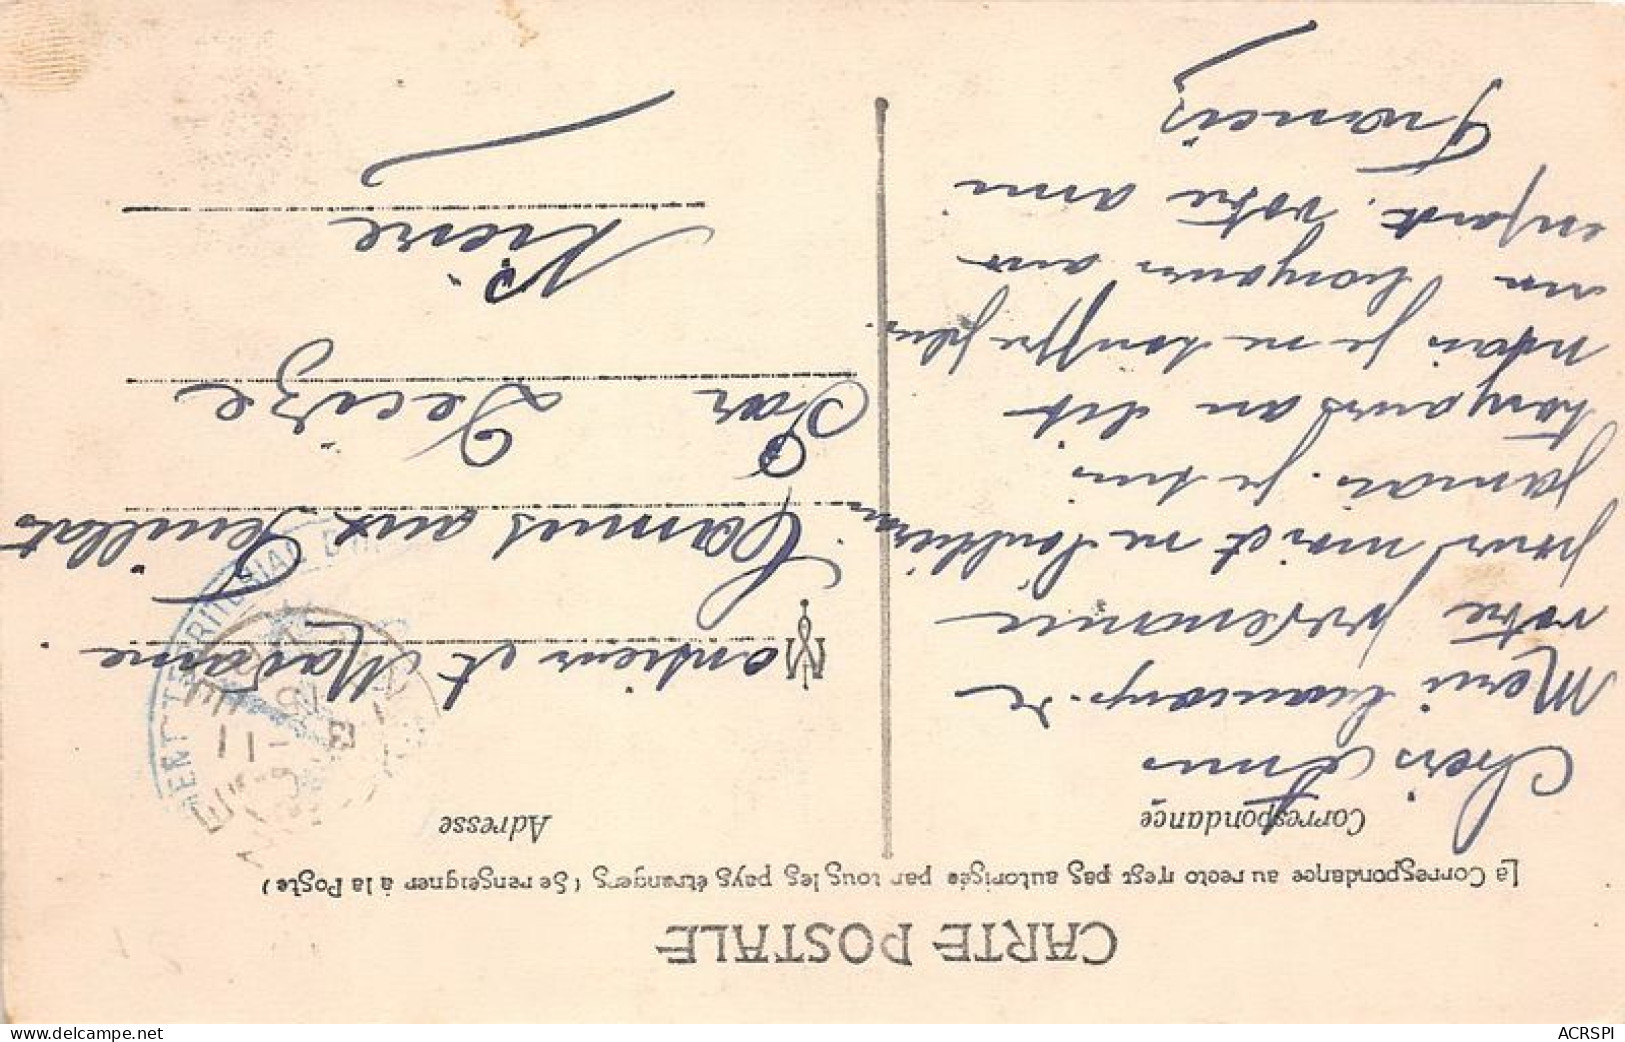 CARTE POSTALE
La Correspondance au recto n'est pas autorisée par tous les pays étrangers (Se renseigner à la Poste)
Correspondance
Adresse
Chers Amis
Merci beaucoup de
votre prévenance
pour moi et ne l'oublierai
jamais. je suis
toujours au lit
mais je ne souffre plus.
un bonjour aux
enfants. votre ami
Francis
Monsieur et Madame
Camus aux Feuillats
Par Decize
Nièvre
www.delcampe.net
ACRSPI